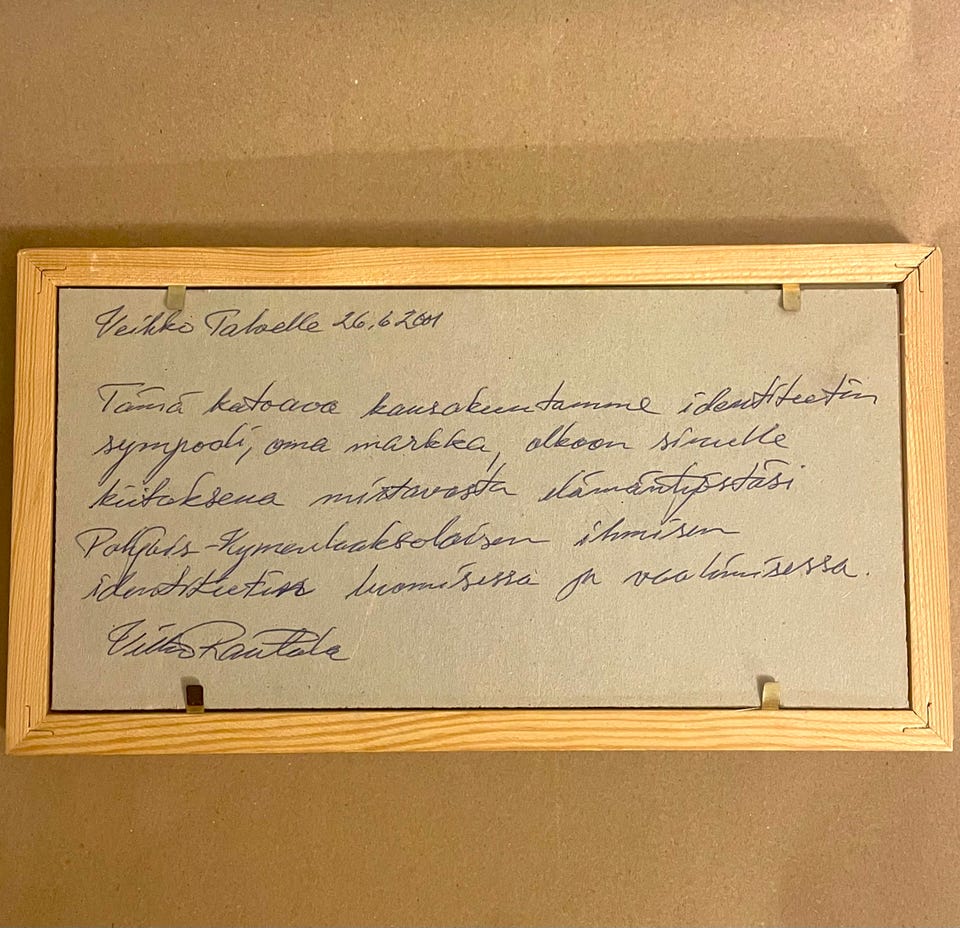 Veikko Talvelle 26.6 2001
Tämä katoava kansakuntamme identiteetin
sympooli, oma markka, olkoon sinulle
kiitoksena mittavasta elämäntyöstäsi
Pohjois-Kymenlaaksolaisen ihmisen
identiteetin luomisessa ja vaalimisessa.
Rautala